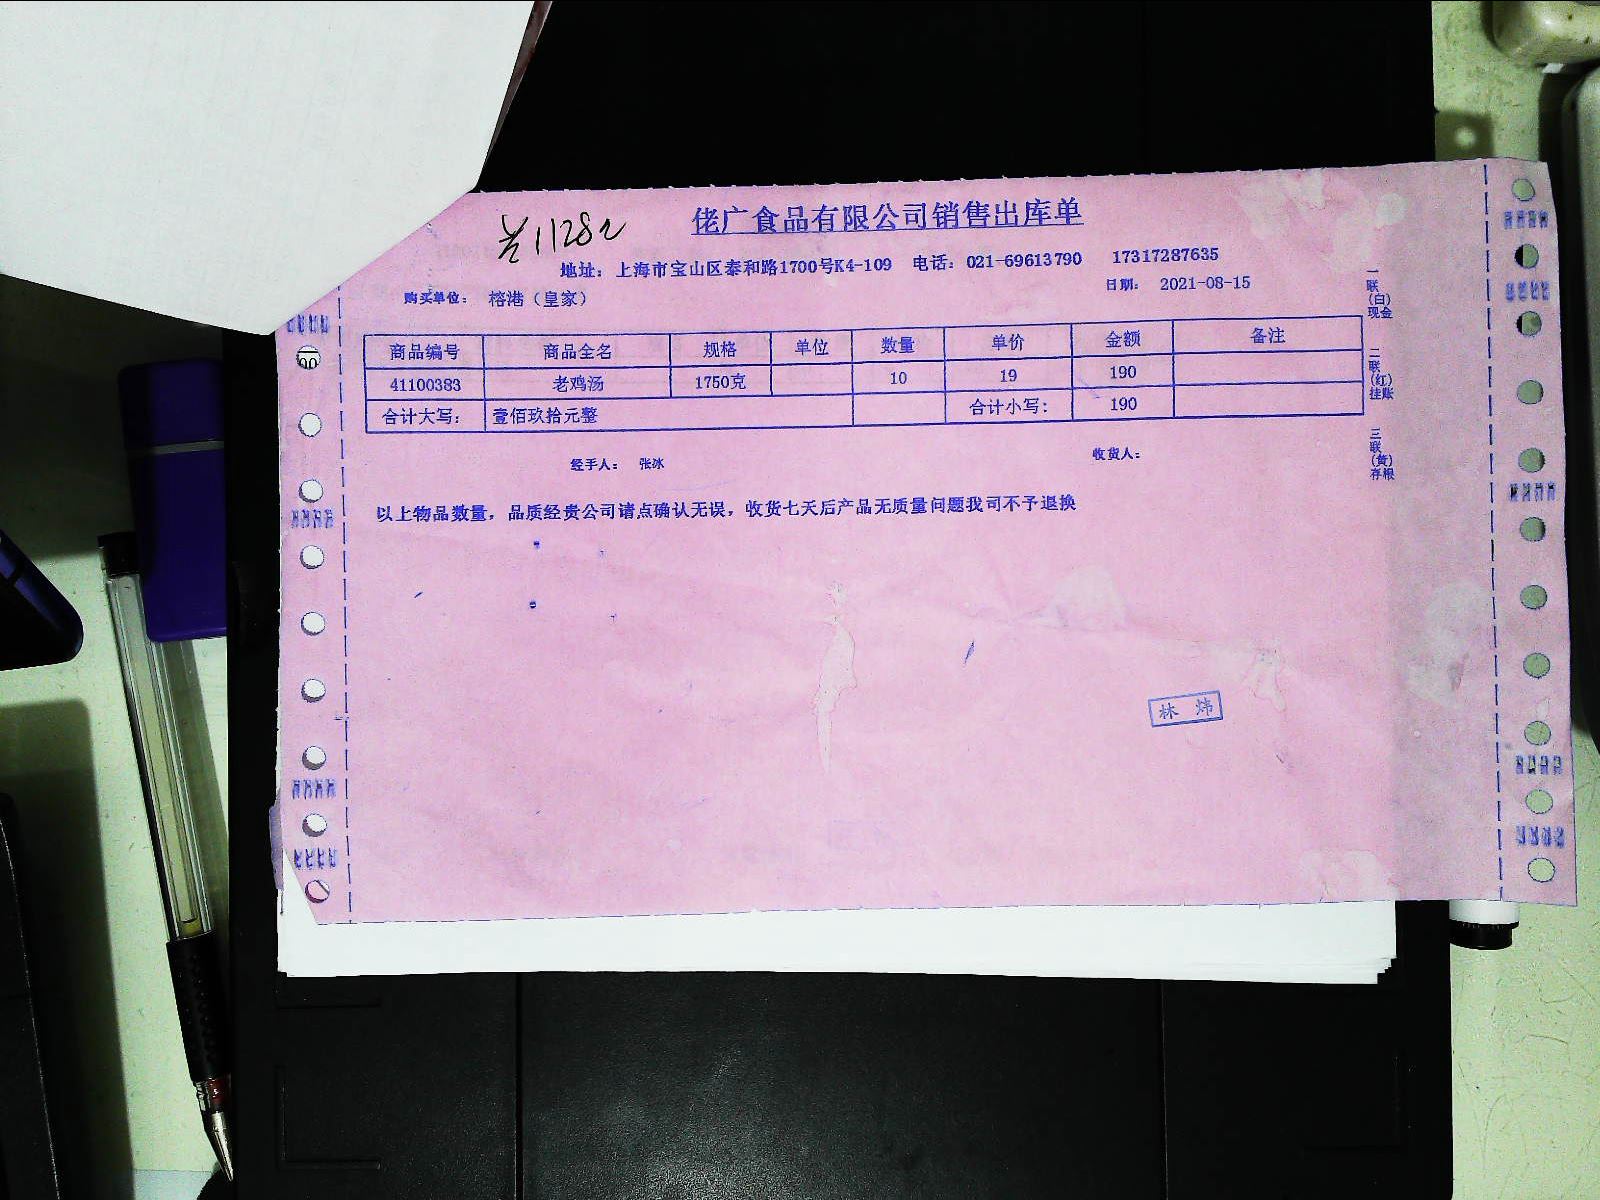 佬广食品有限公司销售出库单
地址：上海市宝山区泰和路1700号K4-109 电话：021-69613790 17317287635
购买单位：榕港（皇家） 日期：2021-08-15
商品编号 商品全名 规格 单位 数量 单价 金额 备注
41100383 老鸡汤 1750克 10 19 190
合计大写：壹佰玖拾元整 合计小写：190
经手人：张冰 收货人：
以上物品数量，品质经贵公司请点确认无误，收货七天后产品无质量问题我司不予退换
一联(白)现金
二联(红)挂账
三联(黄)存根
林炜